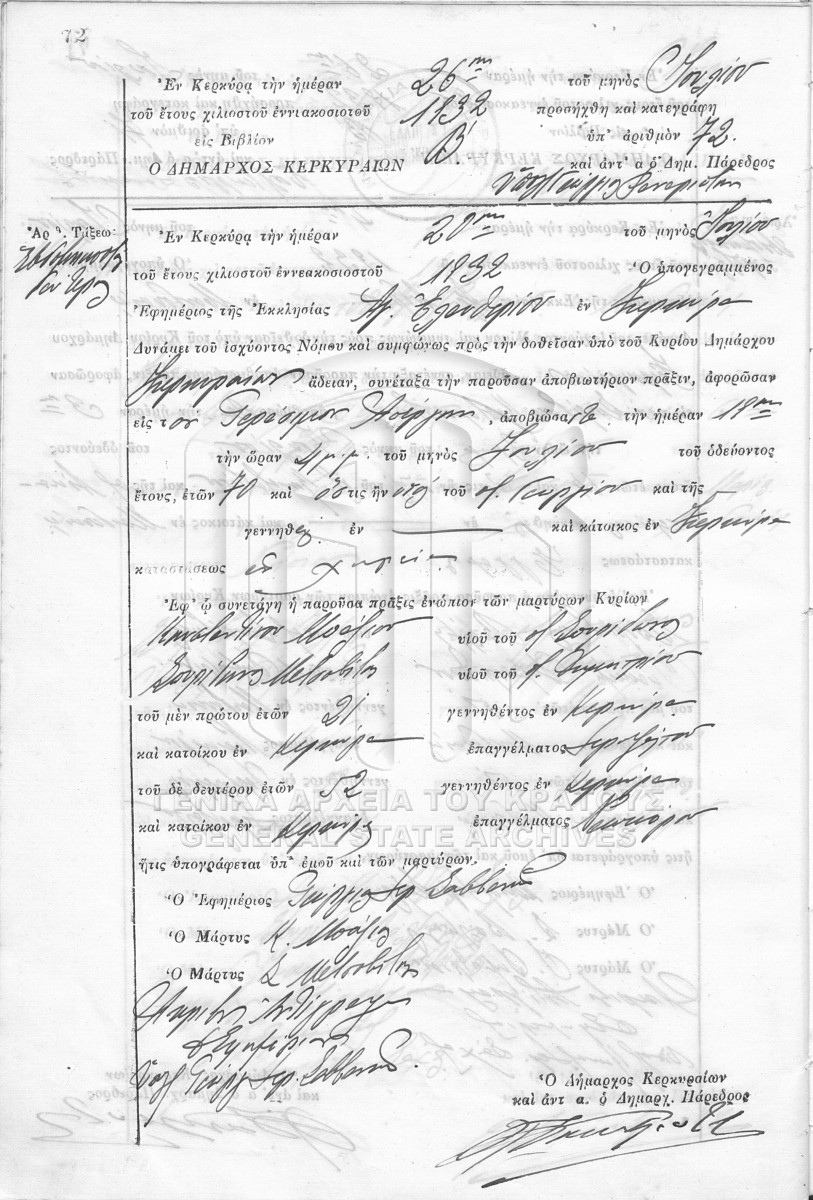 72
Ἐν Κερκύρᾳ τὴν ἡμέραν 26ην τοῦ μηνὸς Ἰουλίου
τοῦ ἔτους χιλιοστοῦ ἐννιακοσιοστοῦ 1932 προσήχθη καὶ κατεγράφη
εἰς Βιβλίον Β' ὑπ' ἀριθμὸν 72.
Ο ΔΗΜΑΡΧΟΣ ΚΕΡΚΥΡΑΙΩΝ καὶ ἀντ' α ὁ Δημ. Πάρεδρος
Ἀρ θ. Τάξεω:
Ἐν Κερκύρᾳ τὴν ἡμέραν 20ην τοῦ μηνὸς Ἰουλίου
τοῦ ἔτους χιλιοστοῦ ἐννεακοσιοστοῦ 1932 Ὁ ὑπογεγραμμένος
Ἐφημέριος τῆς Ἐκκλησίας Ἁγ. Ἐλευθερίου ἐν Κερκύρᾳ
Δυνάμει τοῦ ἰσχύοντος Νόμου καὶ συμφώνως πρὸς τὴν δοθεῖσαν ὑπὸ τοῦ Κυρίου Δημάρχου
Κερκυραίων ἄδειαν, συνέταξα τὴν παροῦσαν ἀποβιωτήριον πρᾶξιν, ἀφορῶσαν
εἰς τὸν Γεράσιμον , ἀποβιώσαντα τὴν ἡμέραν 19ην
τὴν ὥραν 4 μ.μ. τοῦ μηνὸς Ἰουλίου τοῦ ὁδεύοντος
ἔτους, ἐτῶν 70 καὶ ὅστις ἦν υἱὸς τοῦ π. Γεωργίου καὶ τῆς
γεννηθεὶς ἐν καὶ κάτοικος ἐν Κερκύρᾳ
καταστάσεως ἐν χηρείᾳ
Ἐφ' ᾧ συνετάγη ἡ παροῦσα πρᾶξις ἐνώπιον τῶν μαρτύρων Κυρίων
Κωνσταντίνου Μπάζιου υἱοῦ τοῦ π. Σπυρίδωνος
Σπυρίδωνος Μετσοβίτη υἱοῦ τοῦ π. Δημητρίου
τοῦ μὲν πρώτου ἐτῶν 21 γεννηθέντος ἐν Κερκύρᾳ
καὶ κατοίκου ἐν Κερκύρᾳ ἐπαγγέλματος
τοῦ δὲ δευτέρου ἐτῶν 52 γεννηθέντος ἐν Κερκύρᾳ
καὶ κατοίκου ἐν Κερκύρᾳ ἐπαγγέλματος
ΓΕΝΙΚΑ ΑΡΧΕΙΑ ΤΟΥ ΚΡΑΤΟΥΣ
GENERAL STATE ARCHIVES
ἥτις ὑπογράφεται ὑπ' ἐμοῦ καὶ τῶν μαρτύρων.
Ὁ Ἐφημέριος Γεώργιος Ἱερ. Σαββανῆς
Ὁ Μάρτυς Κ. Μπάζιος
Ὁ Μάρτυς Σ Μετσοβίτης
Ἀκριβὲς Ἀντίγραφον
ὁ Ἐφημέριος
Ὑπογ Γεώργ Ἱερ. Σαββανῆς
Ὁ Δήμαρχος Κερκυραίων
καὶ ἀντ α. ὁ Δημαρχ. Πάρεδρος